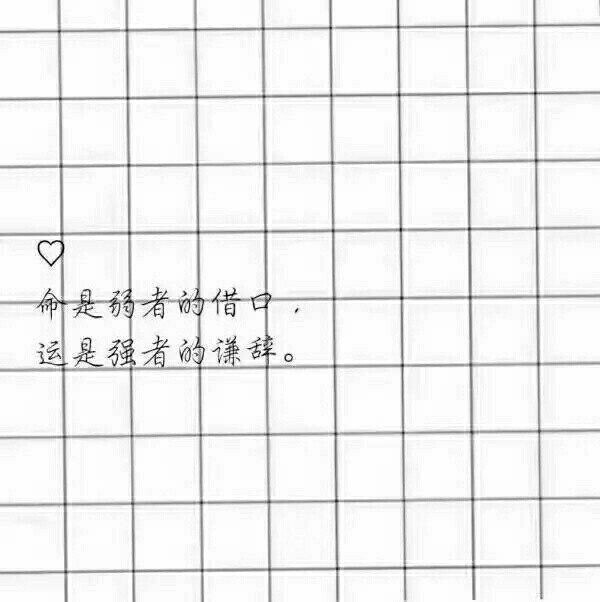 ♡
命是弱者的借口，
运是强者的谦辞。